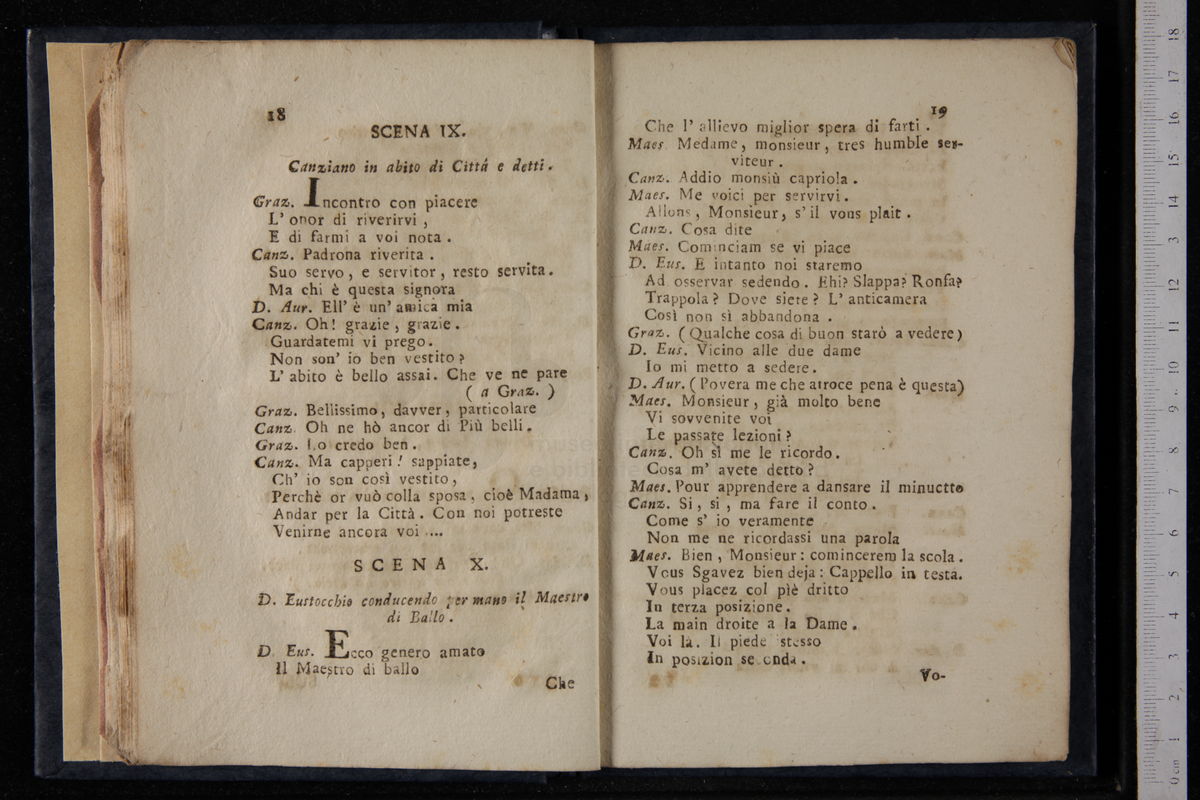 18
SCENA IX.
Canziano in abito di Cittá e detti.
Graz. Incontro con piacere
L' onor di riverirvi ,
E di farmi a voi nota .
Canz. Padrona riverita .
Suo servo , e servitor , resto servita .
Ma chi è questa signora
D. Aur. Ell' è un' amica mia
Canz. Oh ! grazie , grazie .
Guardatemi vi prego .
Non son' io ben vestito ?
L' abito è bello assai . Che ve ne pare
( a Graz. )
Graz. Bellissimo , davver , particolare
Canz. Oh ne hò ancor di Più belli .
Graz. Lo credo ben .
Canz. Ma capperi ! sappiate ,
Ch' io son così vestito ,
Perchè or vuò colla sposa , cioè Madama ,
Andar per la Città . Con noi potreste
Venirne ancora voi ....
SCENA X.
D. Eustocchio conducendo per mano il Maestro
di Ballo .
D. Eus. Ecco genero amato
Il Maestro di ballo
Che
19
Che l' allievo miglior spera di farti .
Maes. Medame , monsieur , tres humble ser-
viteur .
Canz. Addio monsiù capriola .
Maes. Me voici per servirvi .
Allons , Monsieur , s' il vous plait .
Canz. Cosa dite
Maes. Cominciam se vi piace
D. Eus. E intanto noi staremo
Ad osservar sedendo . Ehi ? Slappa ? Ronfa ?
Trappola ? Dove siete ? L' anticamera
Così non sì abbandona .
Graz. ( Qualche cosa di buon starò a vedere )
D. Eus. Vicino alle due dame
Io mi metto a sedere .
D. Aur. ( Povera me che atroce pena è questa )
Maes. Monsieur , già molto bene
Vi sovvenite voi
Le passate lezioni ?
Canz. Oh sì me le ricordo .
Cosa m' avete detto ?
Maes. Pour apprendere a dansare il minuctto
Canz. Si , si , ma fare il conto .
Come s' io veramente
Non me ne ricordassi una parola
Maes. Bien , Monsieur : comincerem la scola .
Vous Sgavez bien deja : Cappello in testa .
Vous placez col piè dritto
In terza posizione .
La main droite a la Dame .
Voi la . Il piede stesso
In posizion seconda .
Vo-